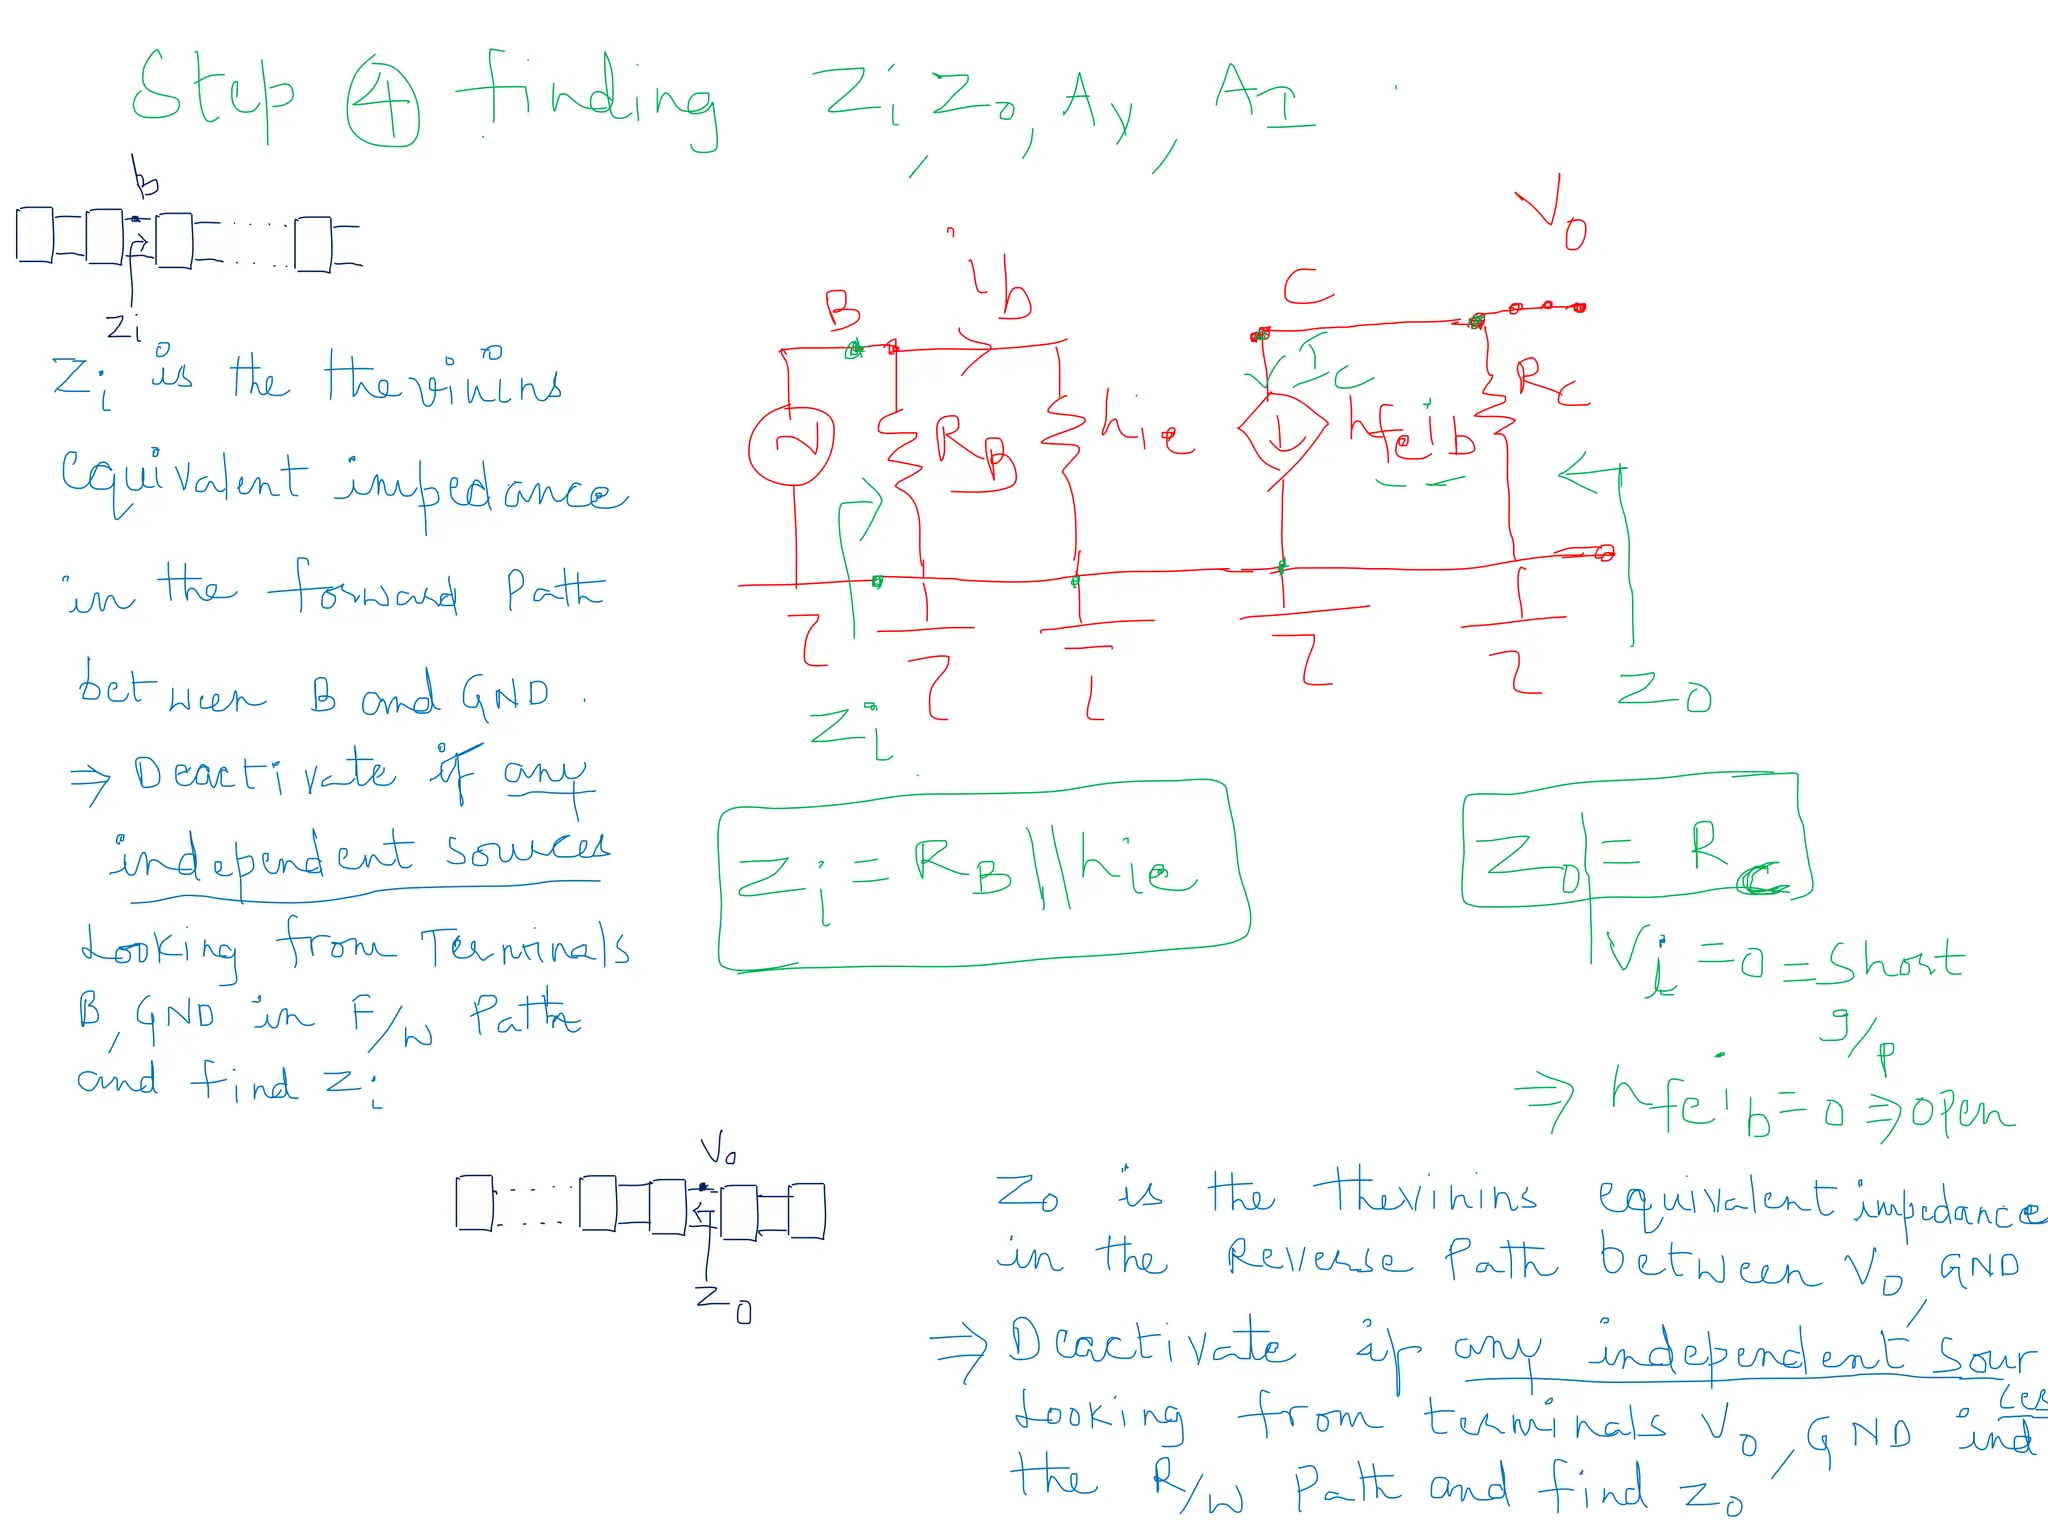 Step ④ finding Zi, Zo, AV, AI
B
Zi
Zi is the thevinins
equivalent impedance
in the forward Path
between B and GND.
⇒ Deactivate if any
independent sources
Looking from Terminals
B, GND in F/W Path
and find Zi
B
ib
C
Vo
RB
hie
Ic
hfeib
RC
Zi
Zo
Zi = RB || hie
Zo | = RC
Vi = 0 = Short
g/p
⇒ hfeib = 0 ⇒ open
Vo
Zo
Zo is the thevinins equivalent impedance
in the Reverse Path between Vo, GND
⇒ Deactivate if any independent sour
ces
Looking from terminals Vo, GND ind
the R/W Path and find Zo